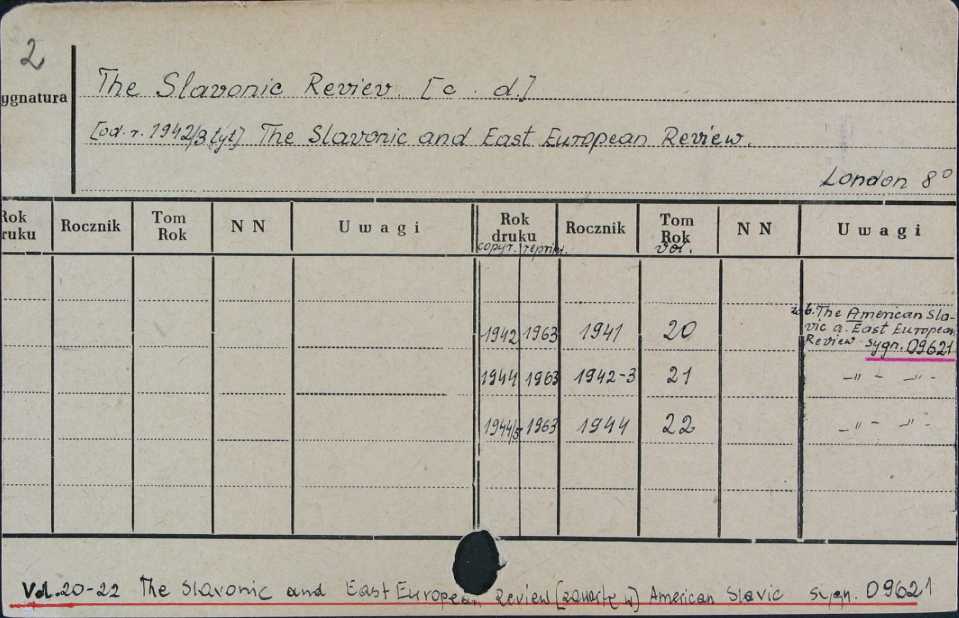 2
ygnatura The Slavonic Review. [c. d.]
[od. r. 1942/3 tyt] The Slavonic and East European Review.
London 8°
Rok druku Rocznik Tom Rok N N Uwagi Rok druku Rocznik Tom Rok N N Uwagi
copyr. reprint. vol.
1942 1963 1941 20 zob. The American Sla-
vic a. East European
Review sygn. 09621
1944 1963 1942-3 21 -"- -"-
1944/5 1963 1944 22 -"- -"-
Vol. 20-22 The Slavonic and East European Review [zawarte w] American Slavic sygn. 09621